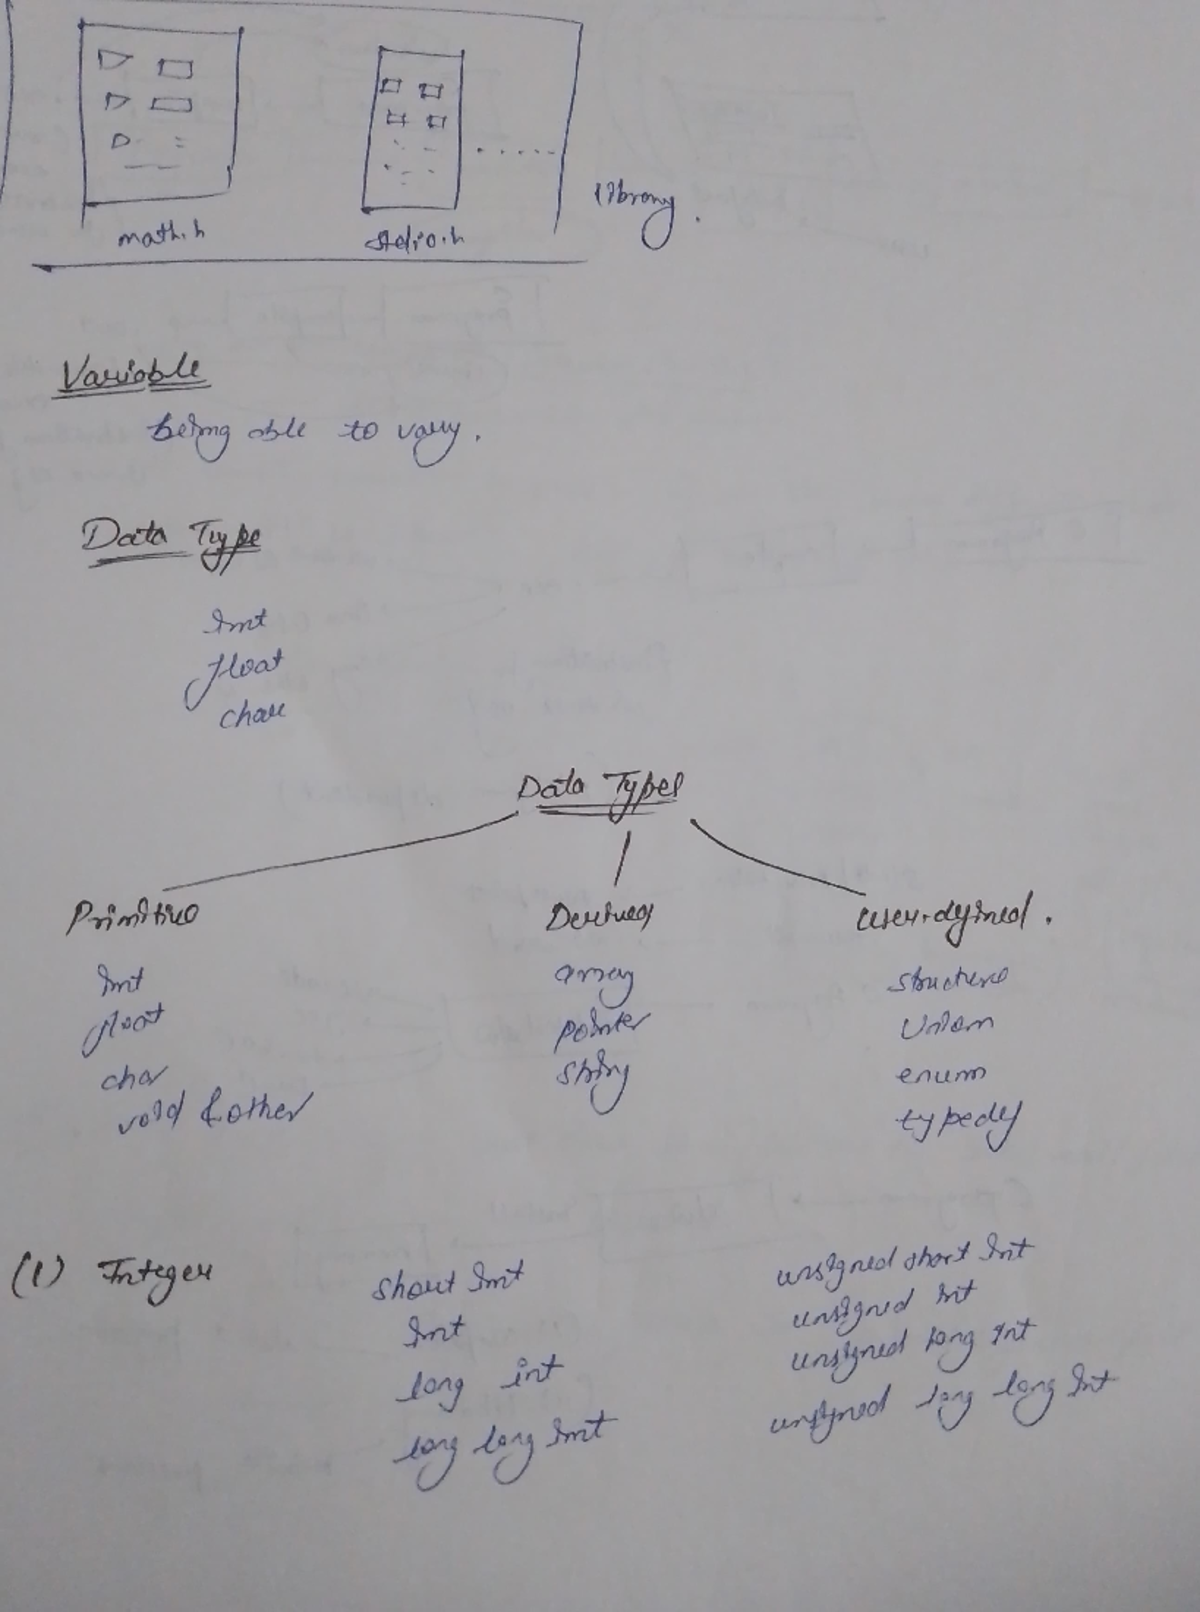 math.h
stdio.h
.....
library.
Variable
being able to vary.
Data Type
int
float
char
Data Types
Primitive
Derived
user-defined.
int
array
structure
float
pointer
Union
char
string
enum
void & other
typedef
(1) Integer
short int
unsigned short int
int
unsigned int
long int
unsigned long int
long long int
unsigned long long int